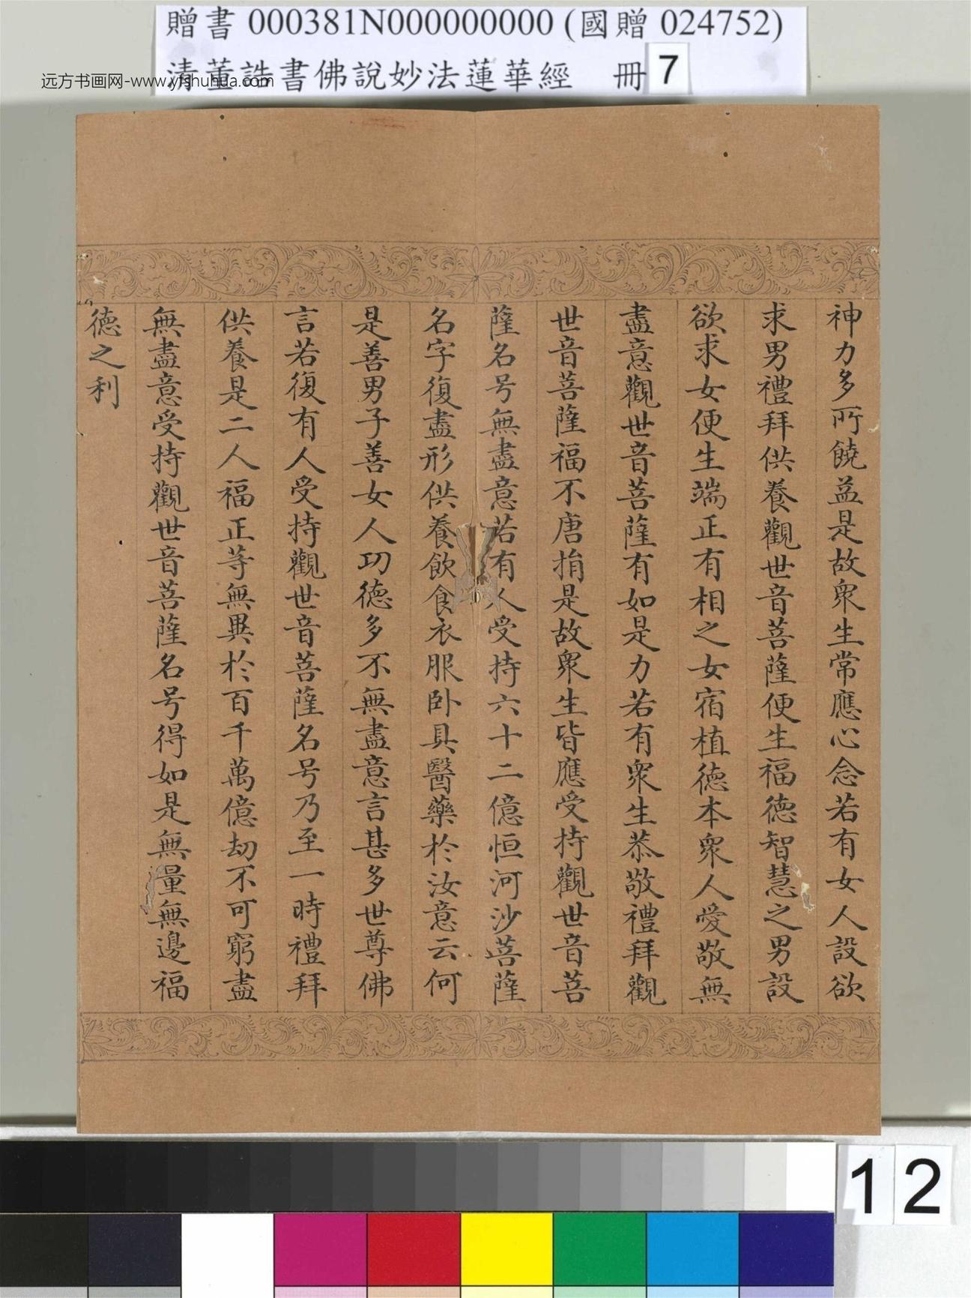 贈書 000381N000000000 (國贈 024752)
清董誥書佛說妙法蓮華經 冊 7
远方书画网-www.yfshuhua.com
神力多所饒益是故衆生常應心念若有女人設欲
求男禮拜供養觀世音菩薩便生福德智慧之男設
欲求女便生端正有相之女宿植德本衆人愛敬無
盡意觀世音菩薩有如是力若有衆生恭敬禮拜觀
世音菩薩福不唐捐是故衆生皆應受持觀世音菩
薩名号無盡意若有人受持六十二億恒河沙菩薩
名字復盡形供養飲食衣服卧具醫藥於汝意云何
是善男子善女人功德多不無盡意言甚多世尊佛
言若復有人受持觀世音菩薩名号乃至一時禮拜
供養是二人福正等無異於百千萬億劫不可窮盡
無盡意受持觀世音菩薩名号得如是無量無邊福
德之利
12